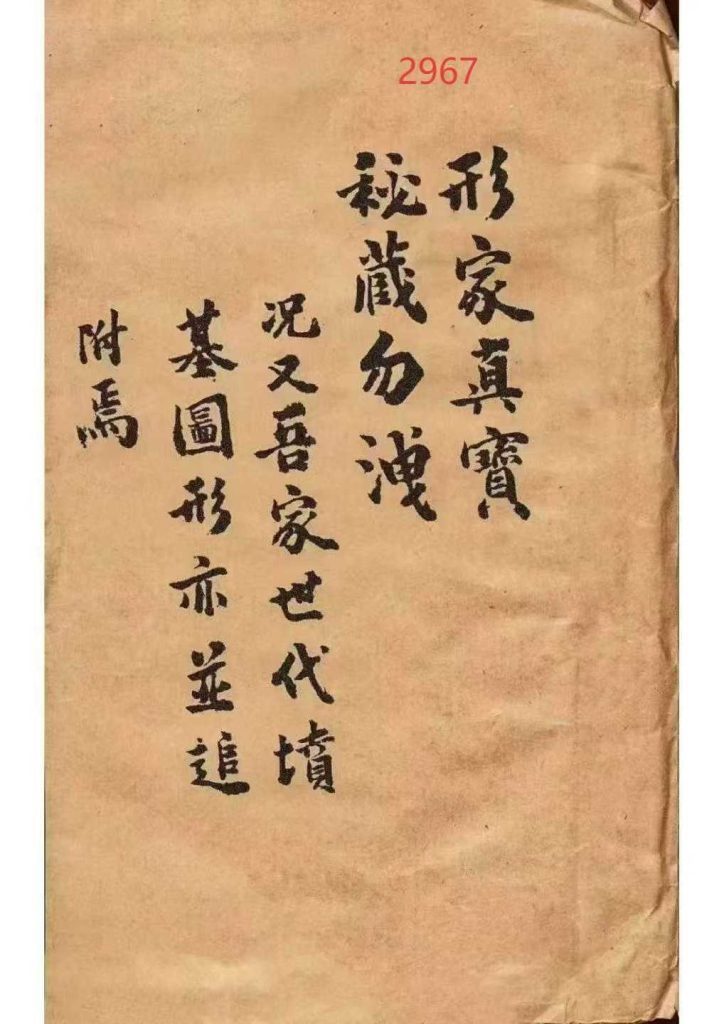 2967
形家真寶
秘藏勿洩
况又吾家世代墳
基圖形亦並追
附焉